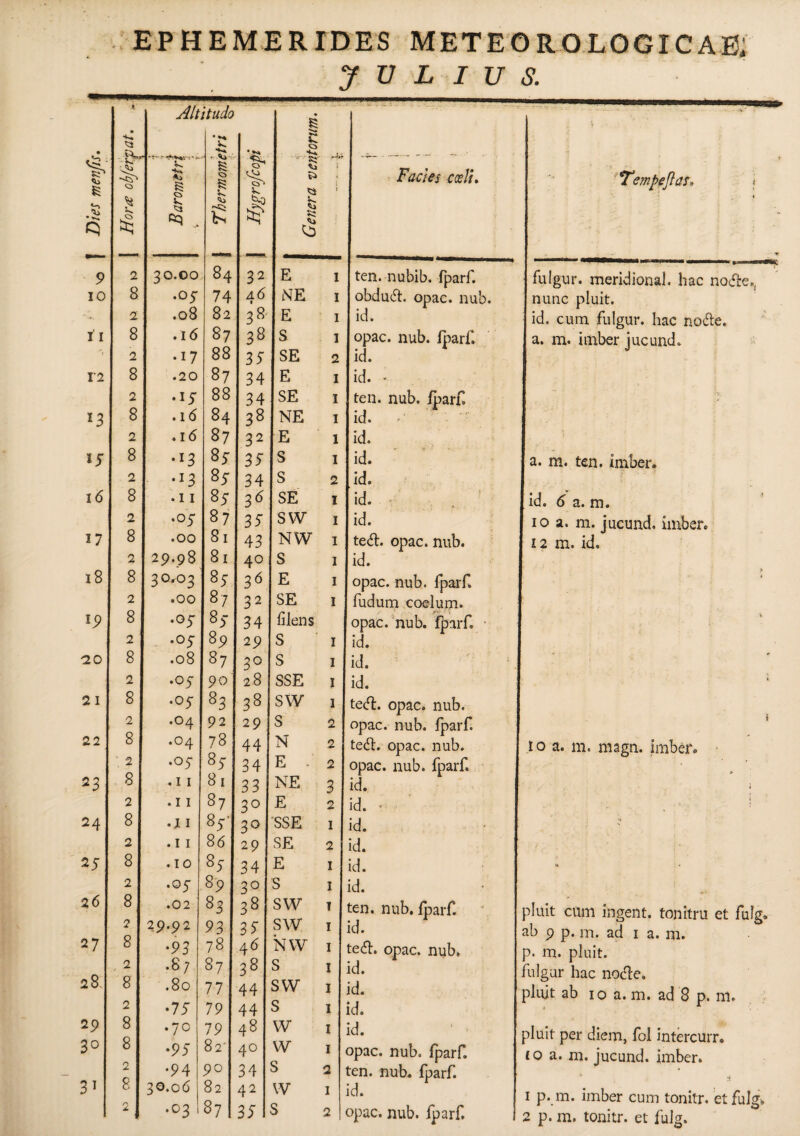 EPHEMERIDES METEOROLOGICAE;
JULIUS.
Altitudo
Dies menſis. Horæ obſervat. Barometri Thermometri Hygroſcopi Genera ventorum. Facies cœli. Tempeſtas.
9 2 30.00 84 32 E 1 ten. nubib. ſparſ. fulgur. meridional. hac nocte.
10 8 .05 74 46 NE 1 obduct. opac. nub. nunc pluit.
2 .08 82 38 E 1 id. id. cum fulgur. hac nocte.
11 8 .16 87 38 S 1 opac. nub. ſparſ. a. m. imber jucund.
2 .17 88 35 SE 2 id.
12 8 .20 87 34 E 1 id.
2 .15 88 34 SE 1 ten. nub. ſparſ.
13 8 .16 84 38 NE 1 id.
2 .16 87 32 E 1 id.
15 8 .13 85 35 S 1 id. a. m. ten. imber.
2 .13 85 34 S 2 id.
16 8 .11 85 36 SE 1 id. id. 6 a. m.
2 .05 87 35 SW 1 id. 10 a. m. jucund. imber.
17 8 .00 81 43 NW 1 tect. opac. nub. 12 m. id.
2 29.98 81 40 S 1 id.
18 8 30.03 85 36 E 1 opac. nub. ſparſ.
2 .00 87 32 SE 1 ſudum coelum.
19 8 .05 85 34 ſilens opac. nub. ſparſ.
2 .05 89 29 S 1 id.
20 8 .08 87 30 S 1 id.
2 .05 90 28 SSE 1 id.
21 8 .05 83 38 SW 1 tect. opac. nub.
2 .04 92 29 S 2 opac. nub. ſparſ.
22 8 .04 78 44 N 2 tect. opac. nub. 10 a. m. magn. imber.
2 .05 85 34 E 2 opac. nub. ſparſ.
23 8 .11 81 33 NE 3 id.
2 .11 87 30 E 2 id.
24 8 .11 85 30 SSE 1 id.
2 .11 86 29 SE 2 id.
25 8 .10 85 34 E 1 id.
2 .05 89 30 S 1 id.
26 8 .02 83 38 SW 1 ten. nub. ſparſ. pluit cum ingent. tonitru et fulg.
2 29.92 93 35 SW 1 id. ab 9 p. m. ad 1 a. m.
27 8 .93 78 46 NW 1 tect. opac. nub. p. m. pluit.
2 .87 87 38 S 1 id. fulgur hac nocte.
28 8 .80 77 44 SW 1 id. pluit ab 10 a. m. ad 8 p. m.
2 .75 79 44 S 1 id.
29 8 .70 79 48 W 1 id. pluit per diem, ſol intercurr.
30 8 .95 82 40 W 1 opac. nub. ſparſ. 10 a. m. jucund. imber.
2 .94 90 34 S 2 ten. nub. ſparſ.
31 8 30.06 82 42 W 1 id. 1 p. m. imber cum tonitr. et fulg.
2 .03 87 35 S 2 opac. nub. ſparſ. 2 p. m. tonitr. et fulg.